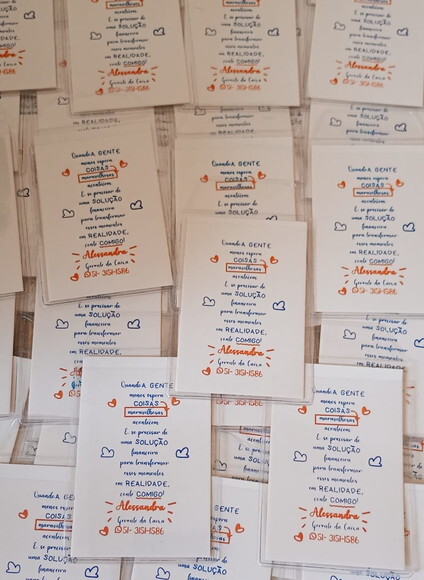 Quando A GENTE
menos espera
COISAS
maravilhosas
acontecem
E se precisar de
uma SOLUÇÃO
financeira
para transformar
esses momentos
em REALIDADE,
conte COMIGO!
Alessandra
Gerente da Caixa
51- 3151-1586